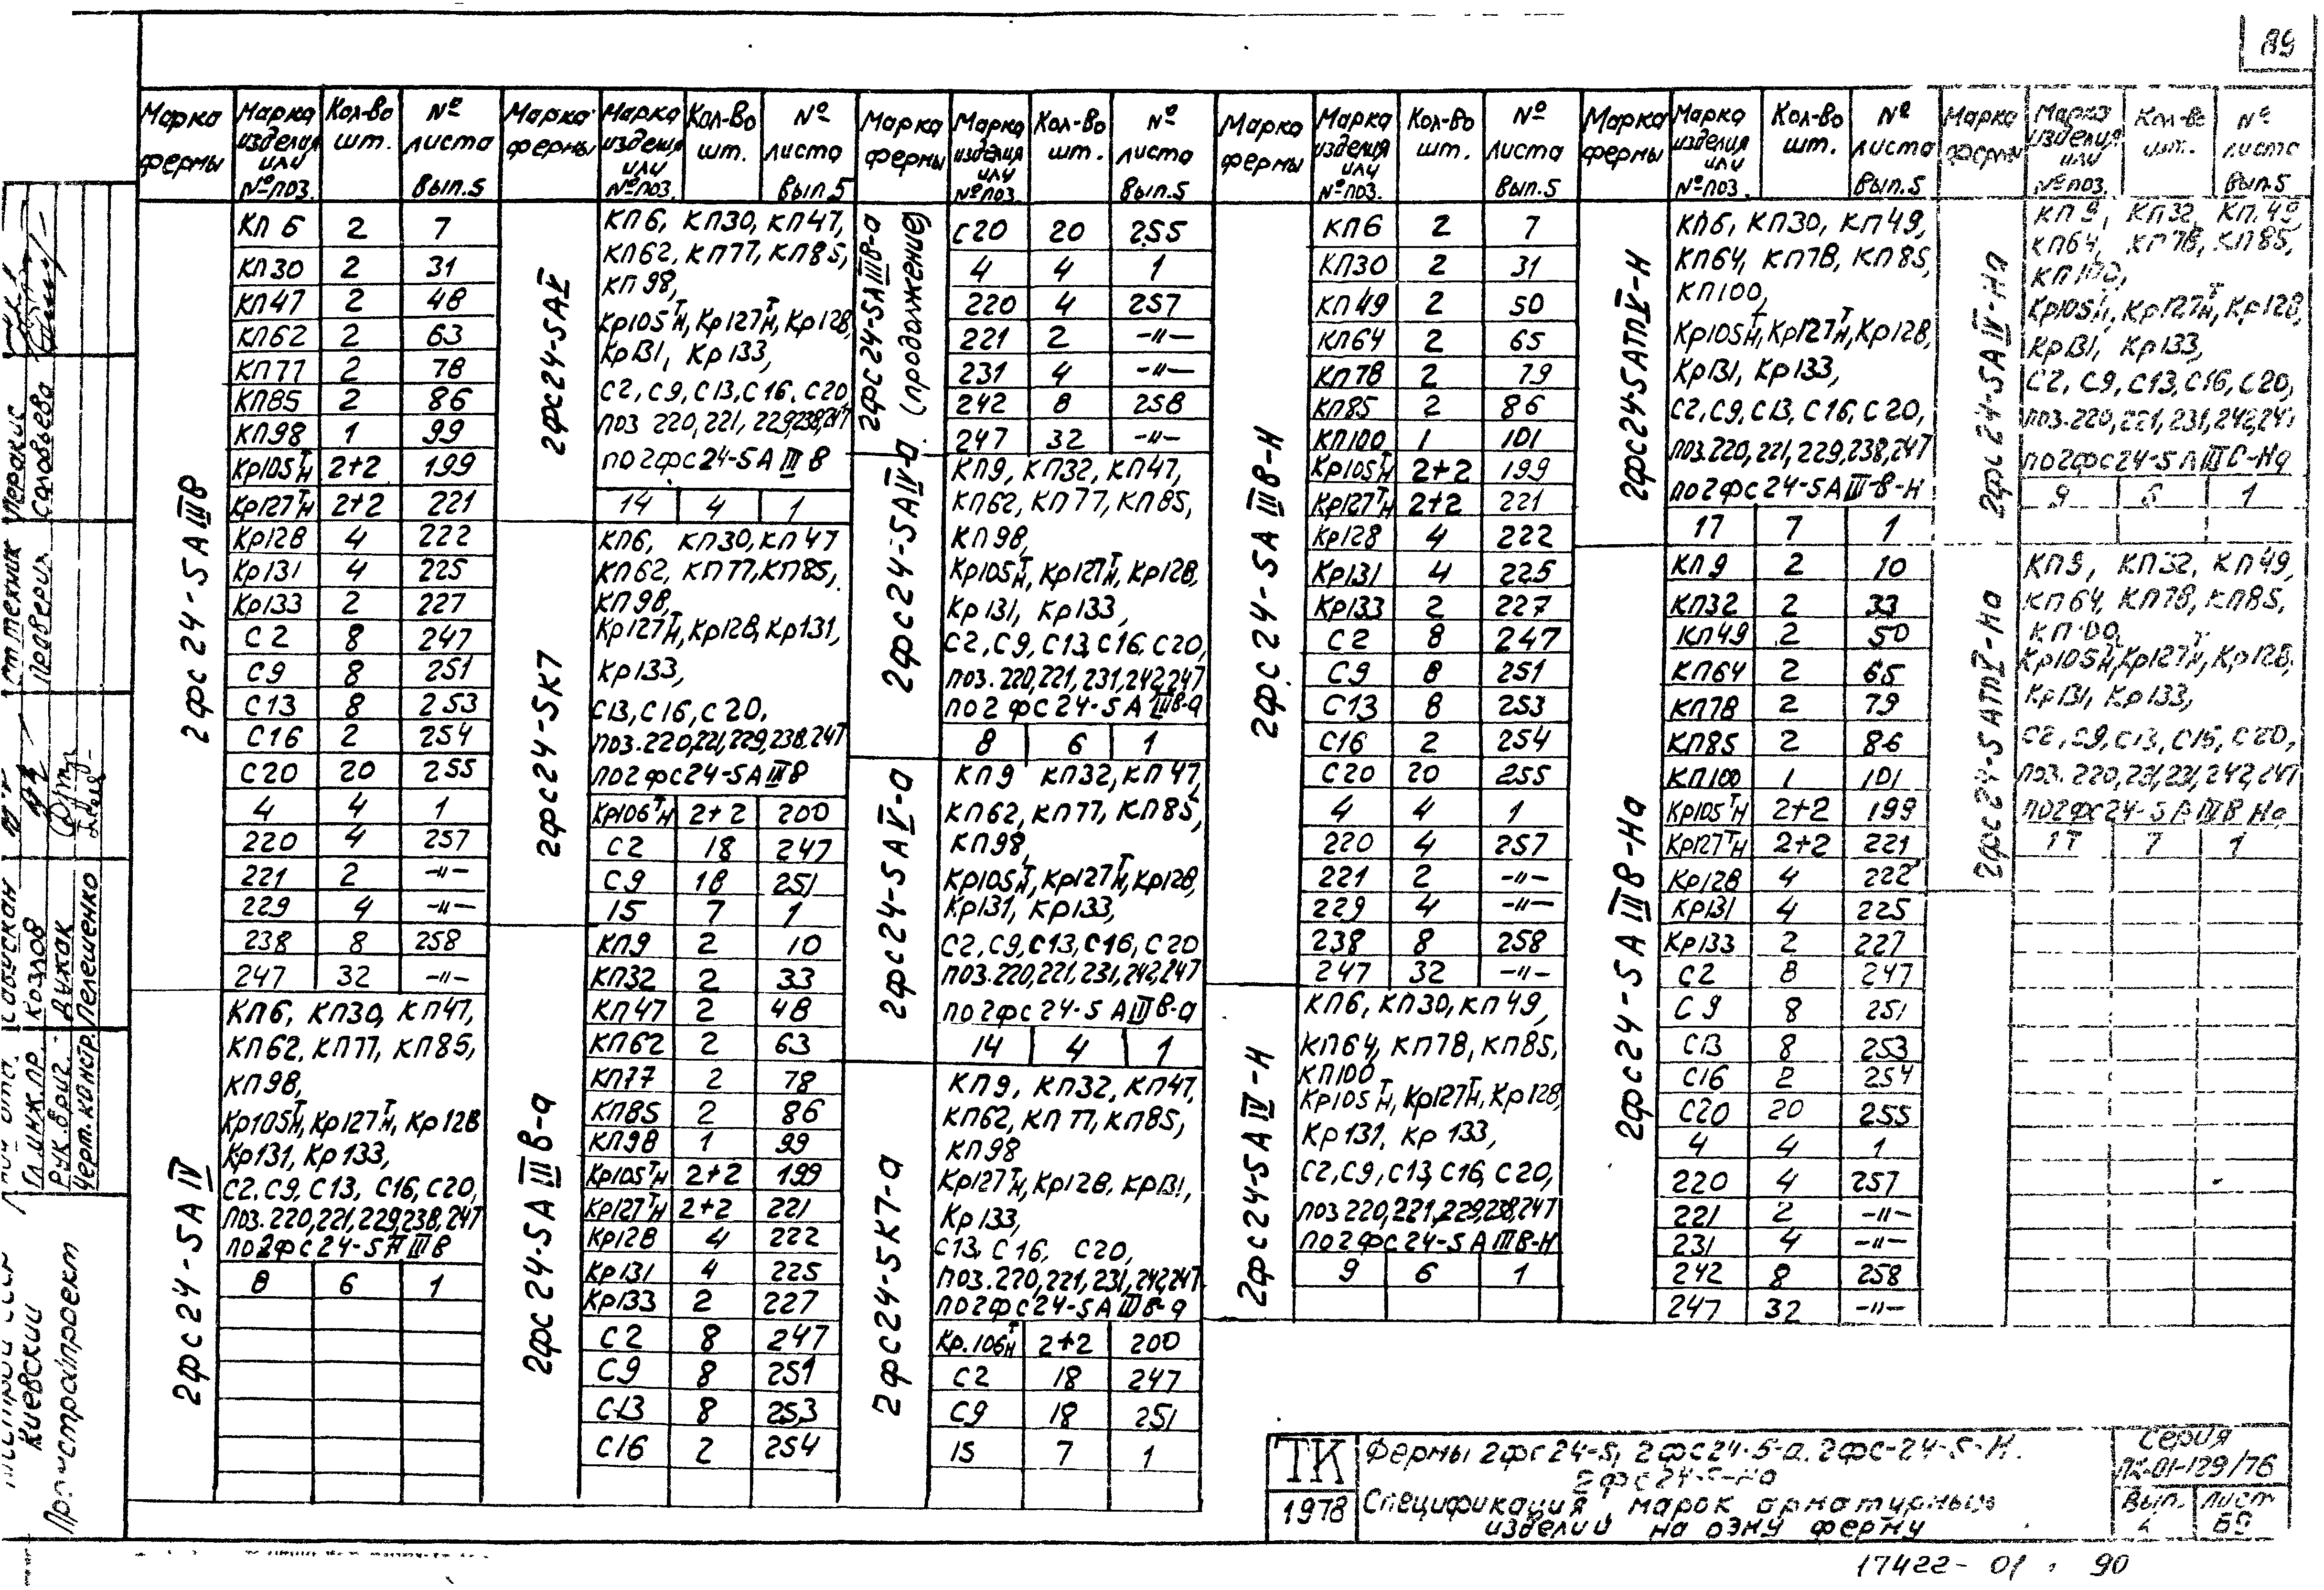 89
Марка фермы | Марка изделия или № поз. | Кол-во шт. | № листа Вып.5
2фс24-5АIIIВ
КП6 2 7
КП30 2 31
КП47 2 48
КП62 2 63
КП77 2 78
КП85 2 86
КП98 1 99
Кр105ТН 2+2 199
Кр127ТН 2+2 221
Кр128 4 222
Кр131 4 225
Кр133 2 227
С2 8 247
С9 8 251
С13 8 253
С16 2 254
С20 20 255
4 4 1
220 4 257
221 2 -"-
229 4 -"-
238 8 258
247 32 -"-
2фс24-5АIV
КП6, КП30, КП47,
КП62, КП77, КП85,
КП98,
Кр105ТН, Кр127ТН, Кр128
Кр131, Кр133,
С2, С9, С13, С16, С20,
поз. 220, 221, 229, 238, 247
по 2фс24-5АIIIВ
8 6 1
Марка фермы | Марка изделия или № поз. | Кол-во шт. | № листа Вып.5
2фс24-5АV
КП6, КП30, КП47,
КП62, КП77, КП85,
КП98,
Кр105ТН, Кр127ТН, Кр128,
Кр131, Кр133,
С2, С9, С13, С16, С20,
поз 220, 221, 229, 238, 247
по 2фс24-5АIIIВ
14 4 1
2фс24-5К7
КП6, КП30, КП47
КП62, КП77, КП85,
КП98,
Кр127ТН, Кр128, Кр131,
Кр133,
С13, С16, С20,
поз. 220, 221, 229, 238, 247
по 2фс24-5АIIIВ
Кр106ТН 2+2 200
С2 18 247
С9 18 251
15 7 1
2фс24-5АIIIВ-а
КП9 2 10
КП32 2 33
КП47 2 48
КП62 2 63
КП77 2 78
КП85 2 86
КП98 1 99
Кр105ТН 2+2 199
Кр127ТН 2+2 221
Кр128 4 222
Кр131 4 225
Кр133 2 227
С2 8 247
С9 8 251
С13 8 253
С16 2 254
Марка фермы | Марка изделия или № поз. | Кол-во шт. | № листа Вып.5
2фс24-5АIIIВ-а (продолжение)
С20 20 255
4 4 1
220 4 257
221 2 -"-
231 4 -"-
242 8 258
247 32 -"-
2фс24-5АIV-а
КП9, КП32, КП47,
КП62, КП77, КП85,
КП98,
Кр105ТН, Кр127ТН, Кр128,
Кр131, Кр133,
С2, С9, С13, С16, С20,
поз. 220, 221, 231, 242, 247
по 2фс24-5АIIIВ-а
8 6 1
2фс24-5АV-а
КП9 КП32, КП47,
КП62, КП77, КП85,
КП98,
Кр105ТН, Кр127ТН, Кр128,
Кр131, Кр133,
С2, С9, С13, С16, С20
поз. 220, 221, 231, 242, 247
по 2фс24-5АIIIВ-а
14 4 1
2фс24-5К7-а
КП9, КП32, КП47,
КП62, КП77, КП85,
КП98
Кр127ТН, Кр128, Кр131,
Кр133,
С13, С16, С20,
поз. 220, 221, 231, 242, 247
по 2фс24-5АIIIВ-а
Кр.106ТН 2+2 200
С2 18 247
С9 18 251
15 7 1
Марка фермы | Марка изделия или № поз. | Кол-во шт. | № листа Вып.5
2фс24-5АIIIВ-Н
КП6 2 7
КП30 2 31
КП49 2 50
КП64 2 65
КП78 2 79
КП85 2 86
КП100 1 101
Кр105ТН 2+2 199
Кр127ТН 2+2 221
Кр128 4 222
Кр131 4 225
Кр133 2 227
С2 8 247
С9 8 251
С13 8 253
С16 2 254
С20 20 255
4 4 1
220 4 257
221 2 -"-
229 4 -"-
238 8 258
247 32 -"-
2фс24-5АIV-Н
КП6, КП30, КП49,
КП64, КП78, КП85,
КП100
Кр105ТН, Кр127ТН, Кр128,
Кр131, Кр133,
С2, С9, С13, С16, С20,
поз 220, 221, 229, 238, 247
по 2фс24-5АIIIВ-Н
9 6 1
Марка фермы | Марка изделия или № поз. | Кол-во шт. | № листа Вып.5
2фс24-5АТпV-Н
КП6, КП30, КП49,
КП64, КП78, КП85,
КП100,
Кр105ТН, Кр127ТН, Кр128,
Кр131, Кр133,
С2, С9, С13, С16, С20,
поз. 220, 221, 229, 238, 247
по 2фс24-5АIII-В-Н
17 7 1
2фс24-5АIIIВ-На
КП9 2 10
КП32 2 33
КП49 2 50
КП64 2 65
КП78 2 79
КП85 2 86
КП100 1 101
Кр105ТН 2+2 199
Кр127ТН 2+2 221
Кр128 4 222
Кр131 4 225
Кр133 2 227
С2 8 247
С9 8 251
С13 8 253
С16 2 254
С20 20 255
4 4 1
220 4 257
221 2 -"-
231 4 -"-
242 8 258
247 32 -"-
Марка фермы | Марка изделия или № поз. | Кол-во шт. | № листа Вып.5
2фс24-5АIV-На
КП9, КП32, КП49,
КП64, КП78, КП85,
КП100,
Кр105ТН, Кр127ТН, Кр128,
Кр131, Кр133,
С2, С9, С13, С16, С20,
поз. 220, 221, 231, 242, 247
по 2фс24-5АIIIВ-На
9 6 1
2фс24-5АТпV-На
КП9, КП32, КП49,
КП64, КП78, КП85,
КП100
Кр105ТН, Кр127ТН, Кр128,
Кр131, Кр133,
С2, С9, С13, С16, С20,
поз. 220, 221, 231, 242, 247
по 2фс24-5АIIIВ На
17 7 1
Гл.инж.пр. Козлов
Рук.бриг. Дужак
Черт.констр. Пелешенко
ст техник
Проверил Соловьева
Киевский
Промстройпроект
ТК
1978
Фермы 2фс24-5, 2фс24-5-а, 2фс-24-5-Н.
2фс24-5-На
Спецификация марок арматурных
изделий на одну ферму
Серия
ПК-01-129/76
Вып. 4
Лист 89
17422-01 90